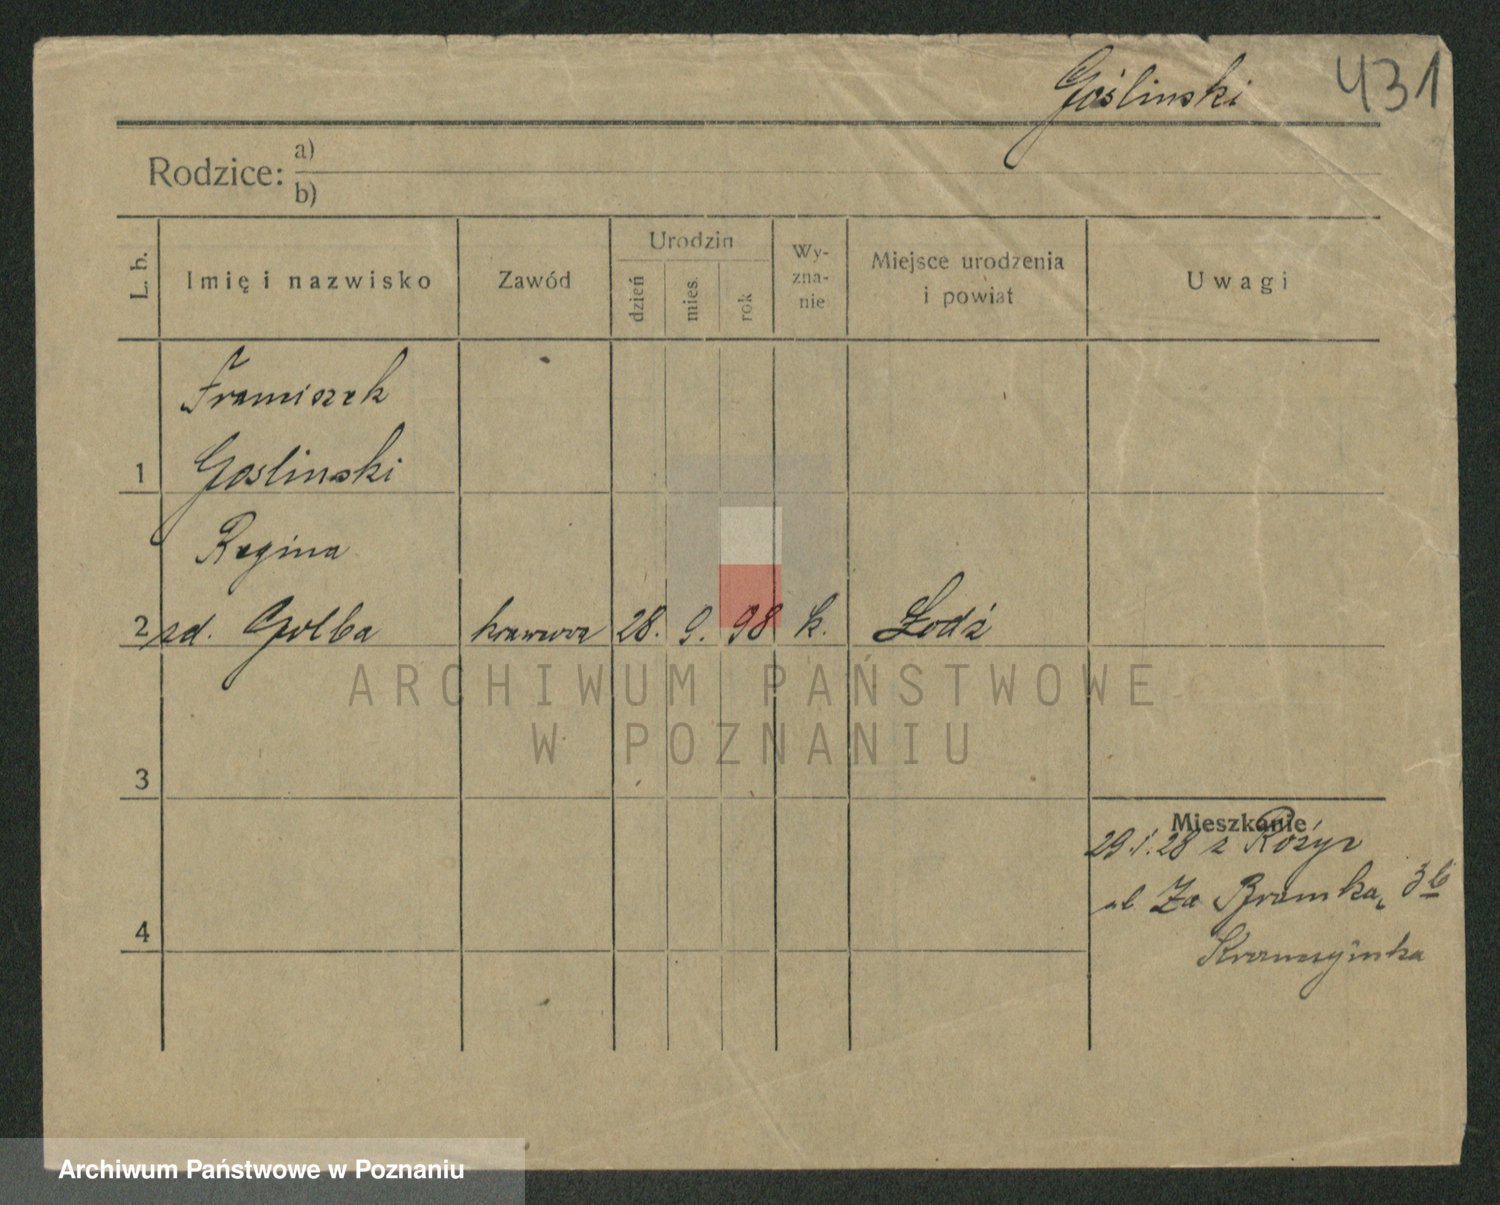 Goślinski 431
Rodzice: a)
b)
L. b. Imię i nazwisko Zawód Urodzin dzień mies. rok Wy-zna-nie Miejsce urodzenia i powiat Uwagi
Franciszek
1 Goslinski
Regina
2 zd. Golba krawcowa 28. 9. 98 k. Łodź
ARCHIWUM PAŃSTWOWE
W POZNANIU
3
Mieszkanie
29.1.28 z
ul. Za Bramką 3b
4
Archiwum Państwowe w Poznaniu